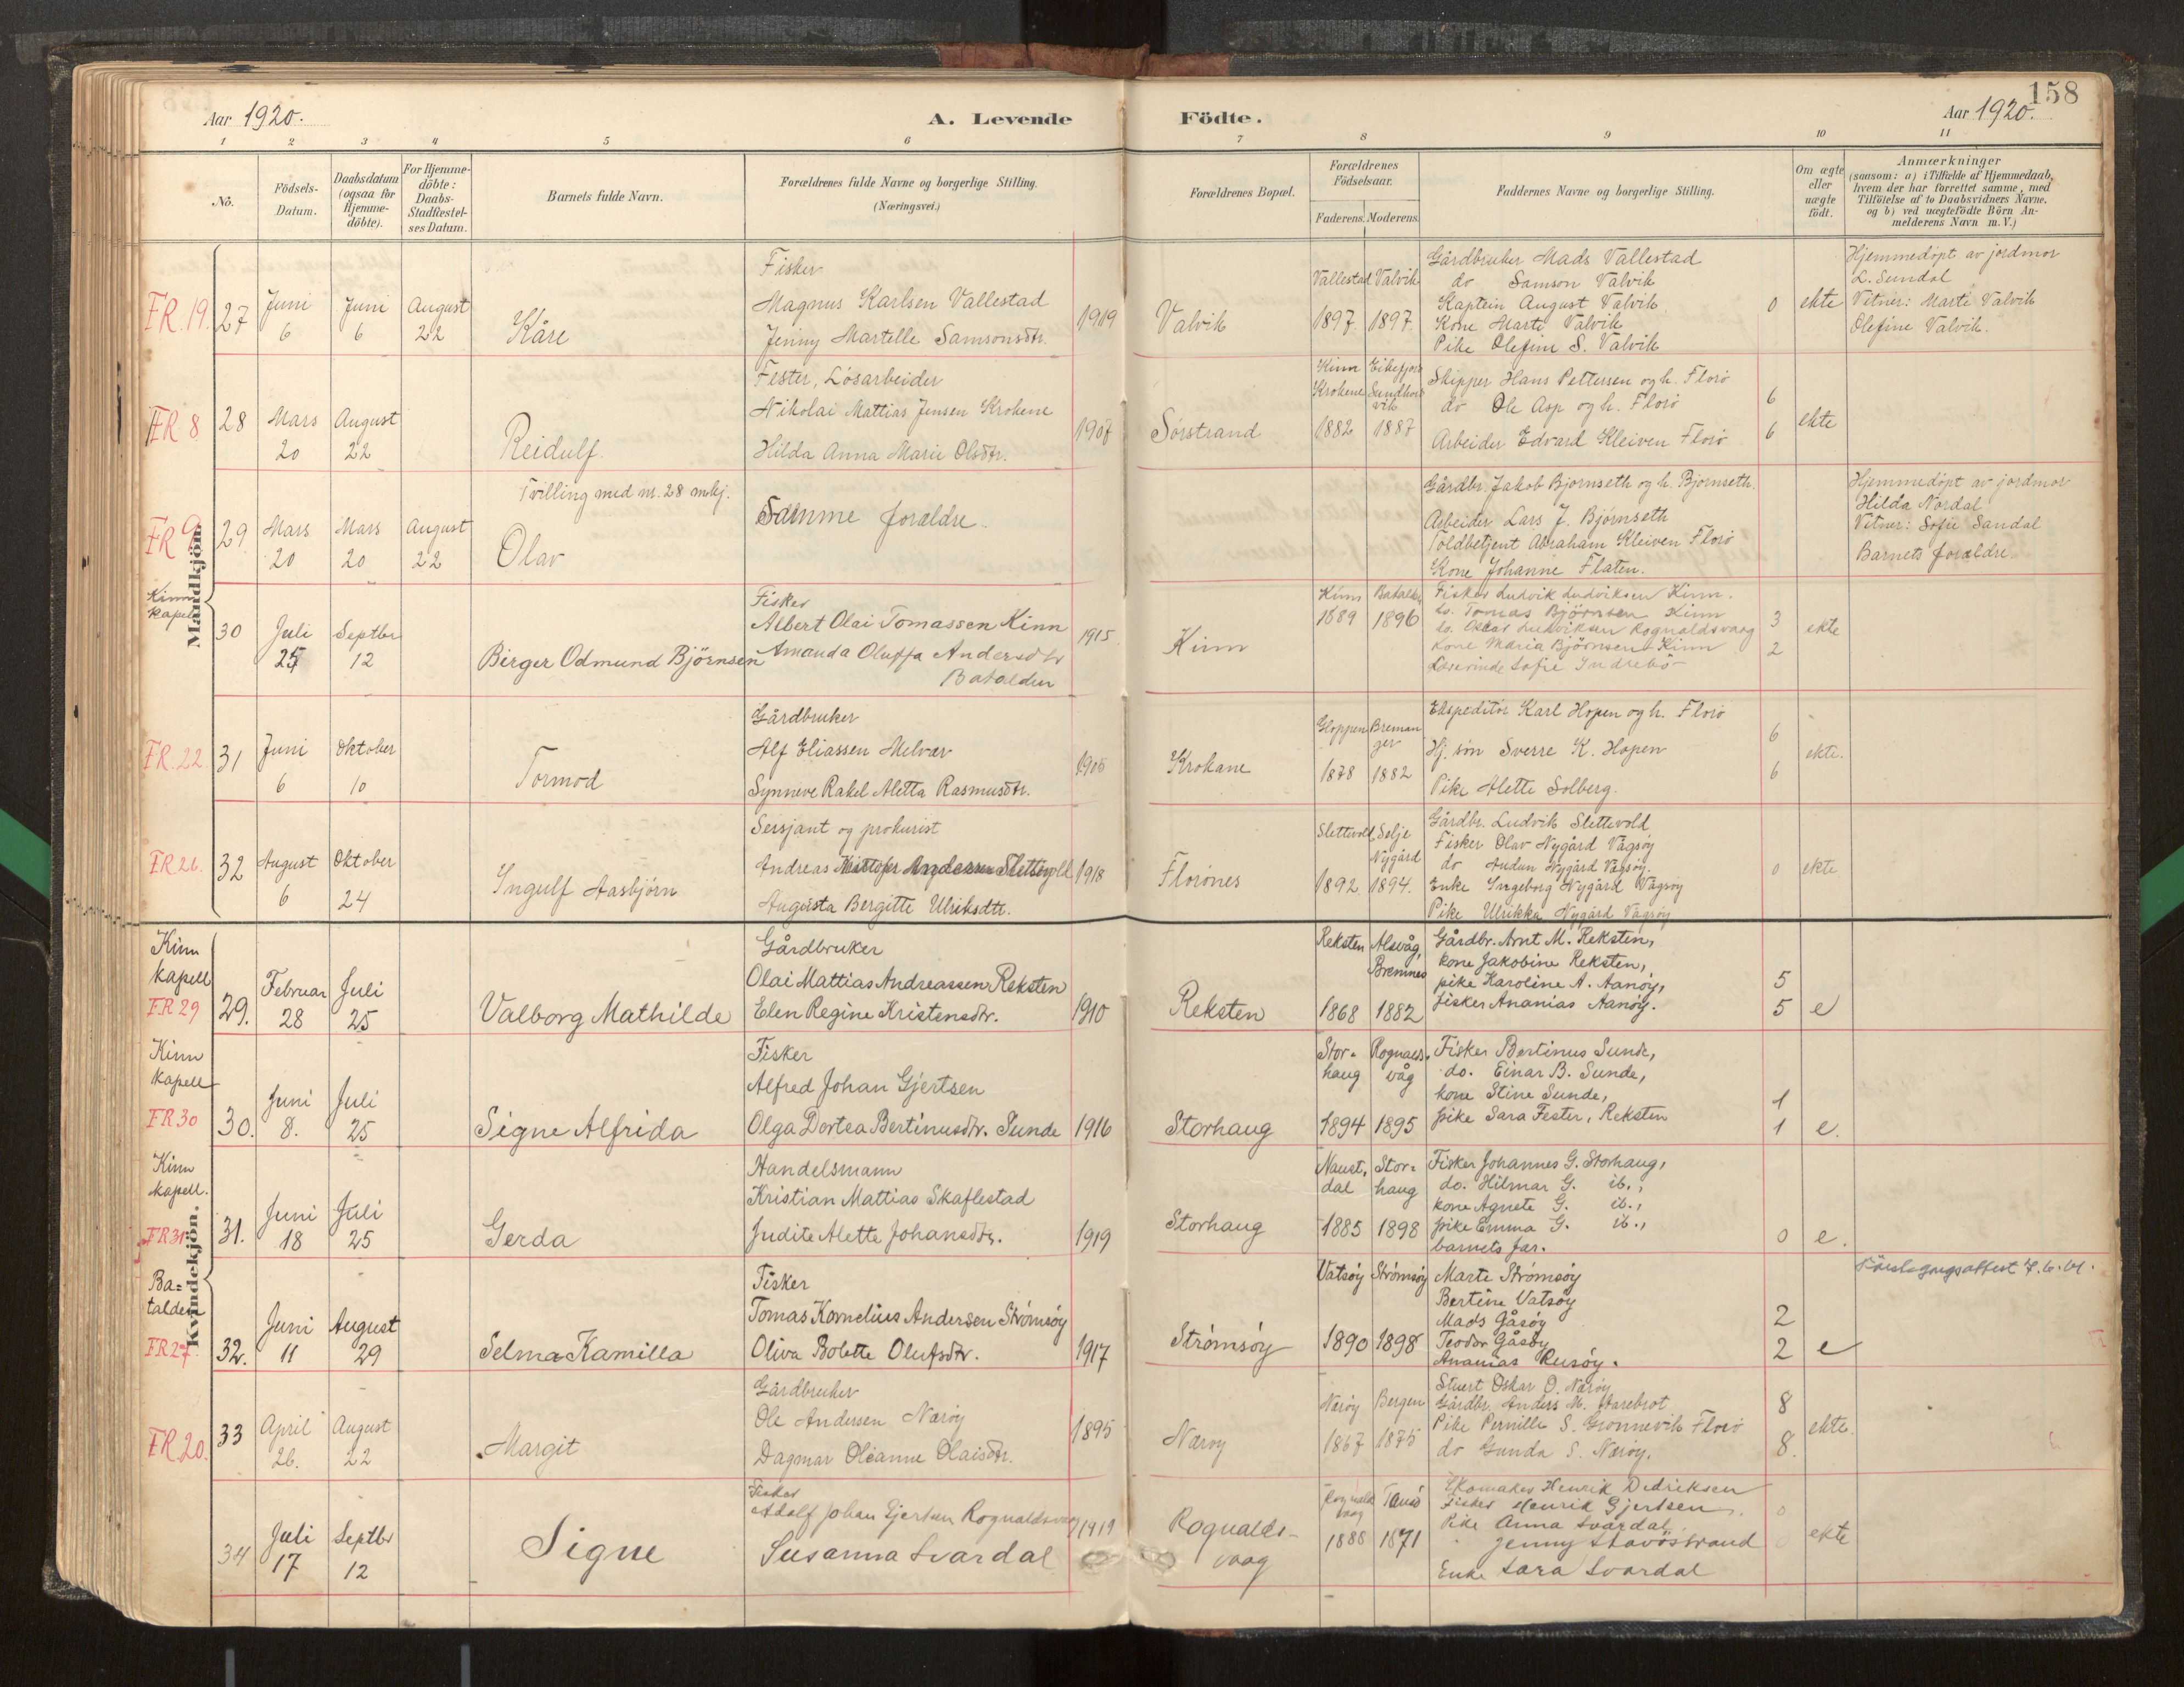 158
Aar 1920.
A. Levende
Födte.
Aar 1920.
1 2 3 4 5 6 7 8 9 10 11
No.
Födsels-Datum.
Daabsdatum (ogsaa for Hjemme-döbte).
For Hjemme-döbte: Daabs-Stadfæstel-ses Datum.
Barnets fulde Navn.
Forældrenes fulde Navne og borgerlige Stilling.
(Næringsvei.)
Forældrenes Bopæl.
Forældrenes Födselsaar.
Faderens. Moderens.
Faddernes Navne og borgerlige Stilling.
Om ægte eller uægte födt.
Anmærkninger
(saasom: a) i Tilfælde af Hjemmedaab, hvem der har forrettet samme, med Tilföielse af to Daabsvidners Navne, og b) ved uægtefödte Börn An-melderens Navn m.V.)
Mandkjön
FR. 19. 27 Juni 6 Juni 6 August 22
Kåre
Fisker
Magnus Karlsen Vallestad
Jenny Martelle Samsonsdtr.
1919
Valvik
Vallestad Valvik
1897. 1897.
Gårdbruker Mads Vallestad
do Samson Valvik
Kaptein August Valvik
Kone Marti Valvik
Pike Olefine S. Valvik
0
ekte
Hjemmedöpt av jordmor
L. Sundal
Vitner: Marti Valvik
Olefine Valvik.
FR 8 28 Mars 20 August 22
Reidulf.
Fester, Lösarbeider
Nikolai Mattias Jensen Krokene
Hilda Anna Marie Olsdtr.
1907
Sörstrand
Kinn Eikefjord
Krokene
1882 1887
Skipper Hans Pettersen og h. Florö
do Ole Asp og h. Florö
Arbeider Edvard Kleiven Florö
6
6
ekte
FR 9 29 Mars 20 Mars 20 August 22
Tvilling med nr. 28 mkj.
Olav
Samme forældre.
Gårdbr. Jakob Bjornseth og h. Bjornseth.
Arbeider Lars J. Björnseth
Toldbetjent Abraham Kleiven Florö
Kone Johanne Flaten.
Hjemmedöpt av jordmor
Hilda Nordal
Vitner: Sofie Sandal
Barnets forældre
Kinn kapel
30 Juli 25 Septbr 12
Birger Odmund Björnsen
Fisker
Albert Olai Tomassen Kinn
Amanda Oluffa Andersdtr
Batalden
1915
Kinn
Kinn Batalden
1889 1896
Fisker Ludvik Ludviksen Kinn.
do. Tomas Björnsen Kinn
do. Oskar Ludviksen Rognaldsvaag
Kone Maria Björnsen Kinn
Lærerinde Sofie Indrebö
3
2
ekte
FR. 22 31 Juni 6 Oktober 10
Tormod
Gårdbruker
Alf Eliassen Melvær
Synneve Rakel Aletta Rasmusdtr.
1905
Krokane
Gloppen Bremanger
1878 1882
Ekspeditör Karl Hopen og h. Florö
Hj. sön Sverre K. Hopen
Pike Alette Solberg.
6
6
ekte.
FR 26. 32 August 6 Oktober 24
Ingulf Aasbjörn
Sersjant og prokurist
Andreas Kristofer Anderssen Slettevold
Augusta Bergitte Ulriksdtr.
1918
Florönes
Slettevold, Selje Nygård
1892 1894.
Gårdbr. Ludvik Slettevold
Fisker Olav Nygård Vågsöy
do Audun Nygård Vågsöy.
Enke Ingeborg Nygård Vågsöy
Pike Ulrikka Nygård Vågsöy
0
ekte
Kvindekjön.
Kinn kapell
FR 29 29. Februar 28 Juli 25
Valborg Mathilde
Gårdbruker
Olai Mattias Andreassen Reksten
Elen Regine Kristensdtr.
1910
Reksten
Reksten Alsvåg, Bremnes
1868 1882
Gårdbr. Arnt M. Reksten,
kone Jakobine Reksten,
pike Karoline A. Aanöy,
fisker Ananias Aanöy.
5
5
e
Kinn kapell
FR 30 30. Juni 8. Juli 25
Signe Alfrida
Fisker
Alfred Johan Gjertsen
Olga Dortea Bertinusdtr. Sunde
1916
Storhaug
Storhaug Rognaldsvåg
1894 1895
Fisker Bertinus Sunde,
do. Einar B. Sunde,
kone Stine Sunde,
pike Sara Fester, Reksten
1
1
e.
Kinn kapell.
FR 31 31. Juni 18 Juli 25
Gerda
Handelsmann
Kristian Mattias Skaflestad
Judite Alette Johansdtr.
1919
Storhaug
Naustdal Storhaug
1885 1898
Fisker Johannes G. Storhaug,
do. Hilmar G. ib.,
kone Agnete G. ib.,
pike Emma G. ib.,
barnets far.
0
e.
Batalden
FR 27 32. Juni 11 August 29
Selma Kamilla
Fisker
Tomas Kornelius Andersen Strömsöy
Oliva Bolette Olufsdtr.
1917
Strömsöy
Vatsöy Strömsöy
1890 1898
Marte Strömsöy
Bertine Vatsöy
Mads Gåsöy
Teodor Gåsöy
Ananias Rusöy.
2
2
e
FR 20. 33 April 26. August 22
Margit
Gårdbruker
Ole Andersen Næröy
Dagmar Oleanne Olaisdtr.
1895
Næröy
Næröy Bergen
1867 1875
Stuert Oskar O. Næröy
Gårdbr. Anders M. Starebrot
Pike Pernille S. Grönnevik Florö
do Gunda S. Næröy.
8
8.
ekte.
34 Juli 17 Septbr 12
Signe
Fisker
Adolf Johan Gjertsen Rognaldsvaag
Susanna Svardal
1919
Rognaldsvaag
Rognaldsvaag Tansö
1888 1871
Skomaker Henrik Dedriksen
Fisker Henrik Gjertsen
Pike Anna Svardal
" Jenny Stavöstrand
Enke Sara Svardal
0
0
ekte